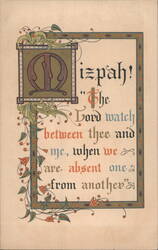 Mizpah!
"The
Lord watch
between thee and
me, when we
are absent one
from another"